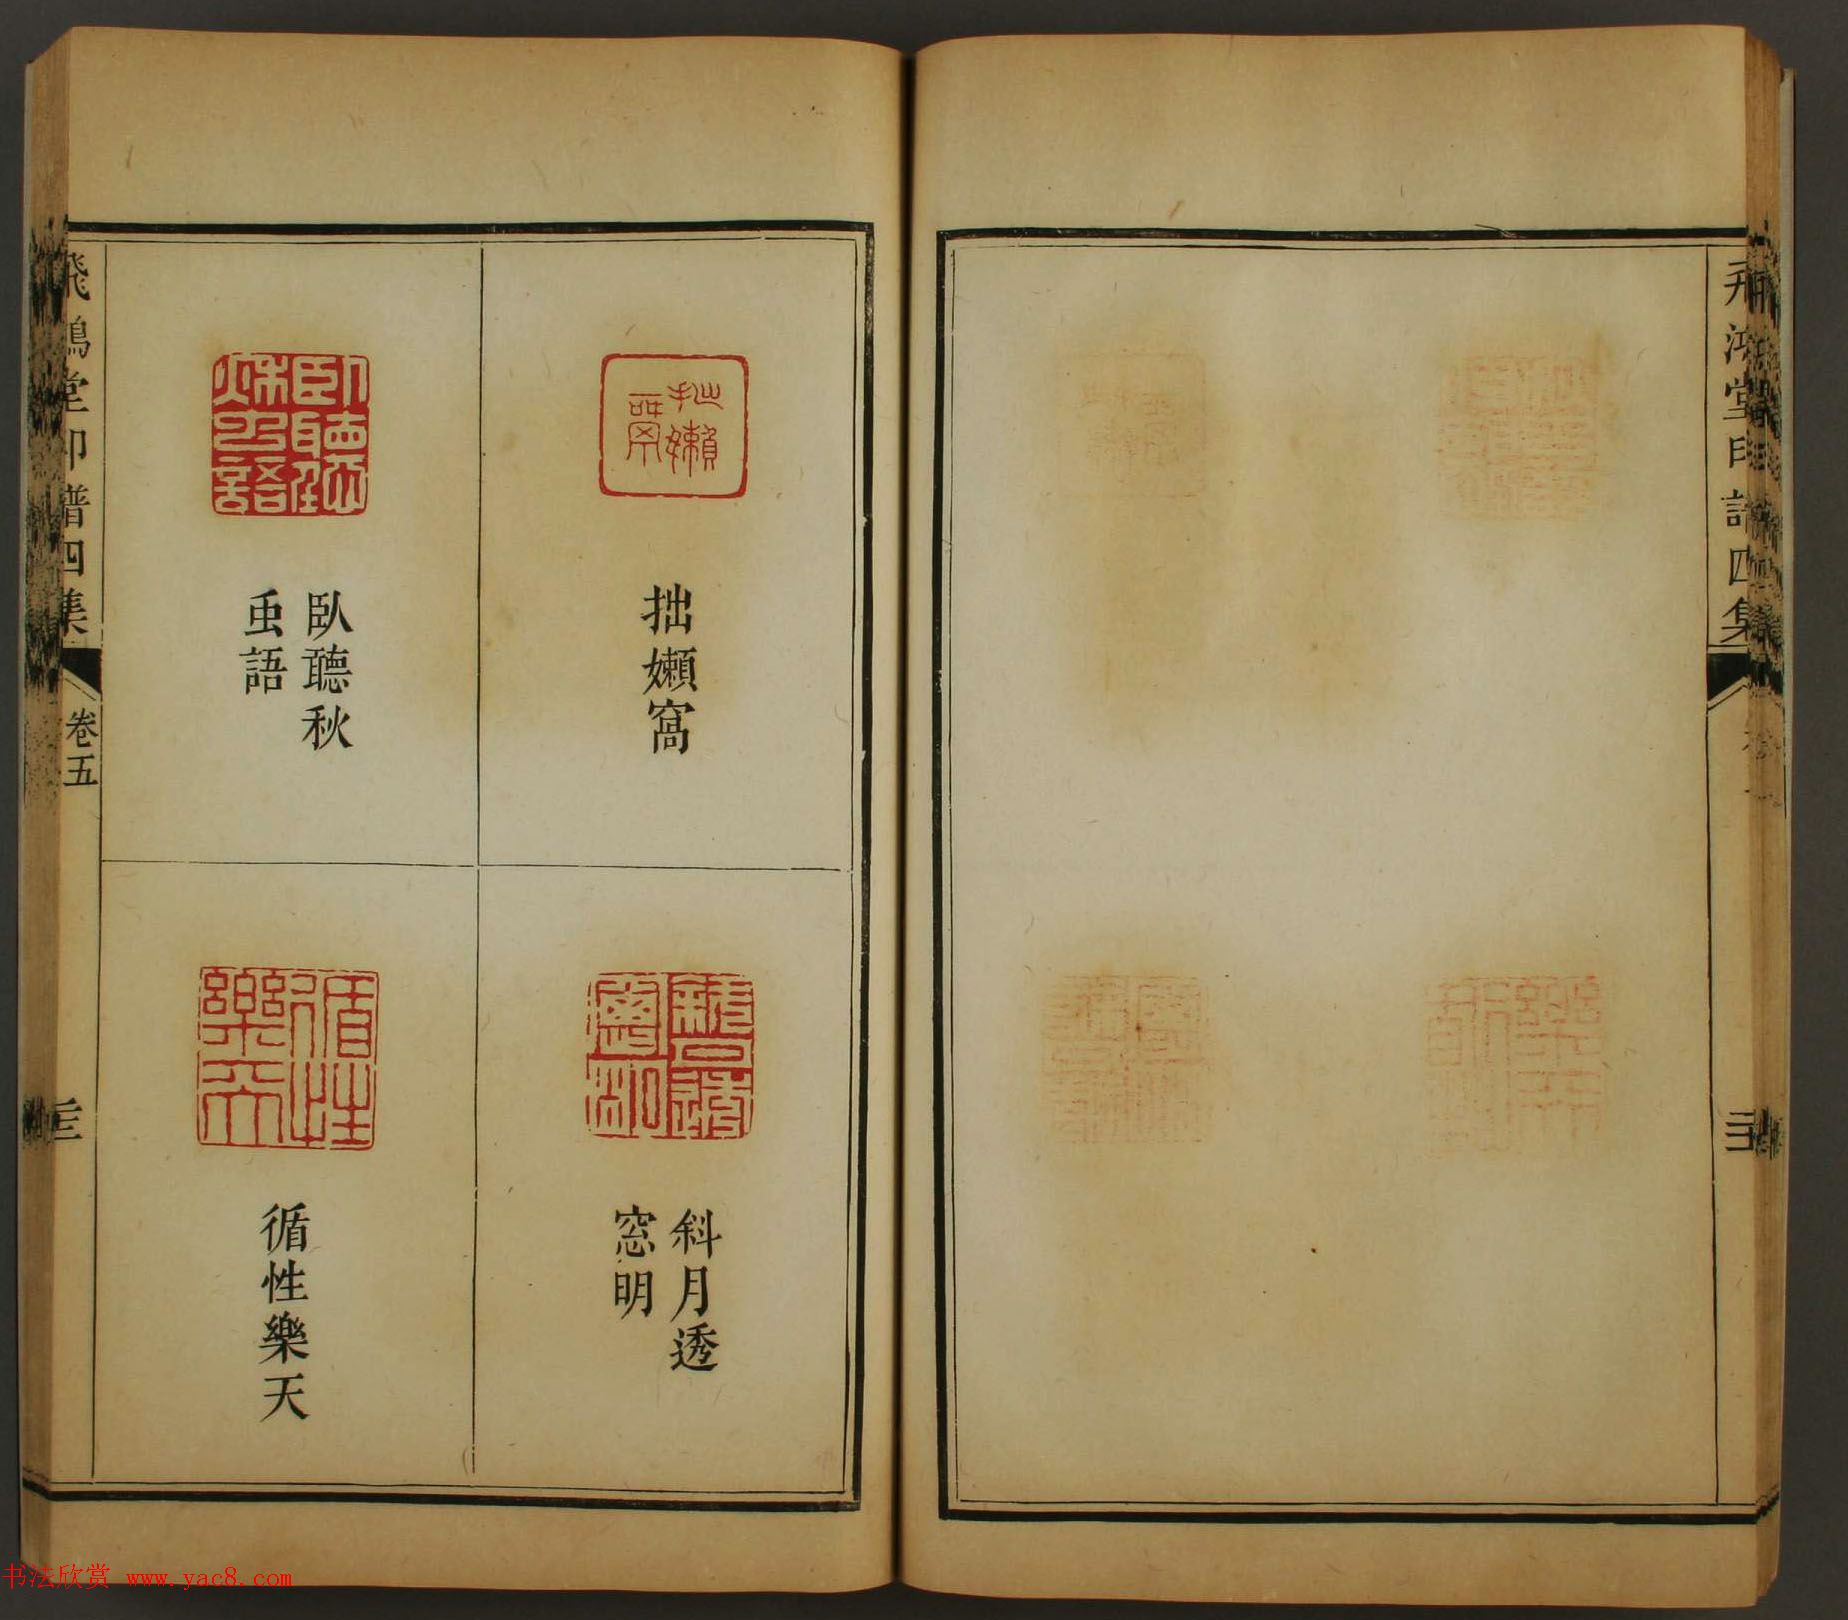 飛鴻堂印譜四集
拙嬾窩
臥聽秋
䖝語
斜月透
窓明
循性樂天
飛鴻堂印譜四集
卷五
书法欣赏 www.yac8.com